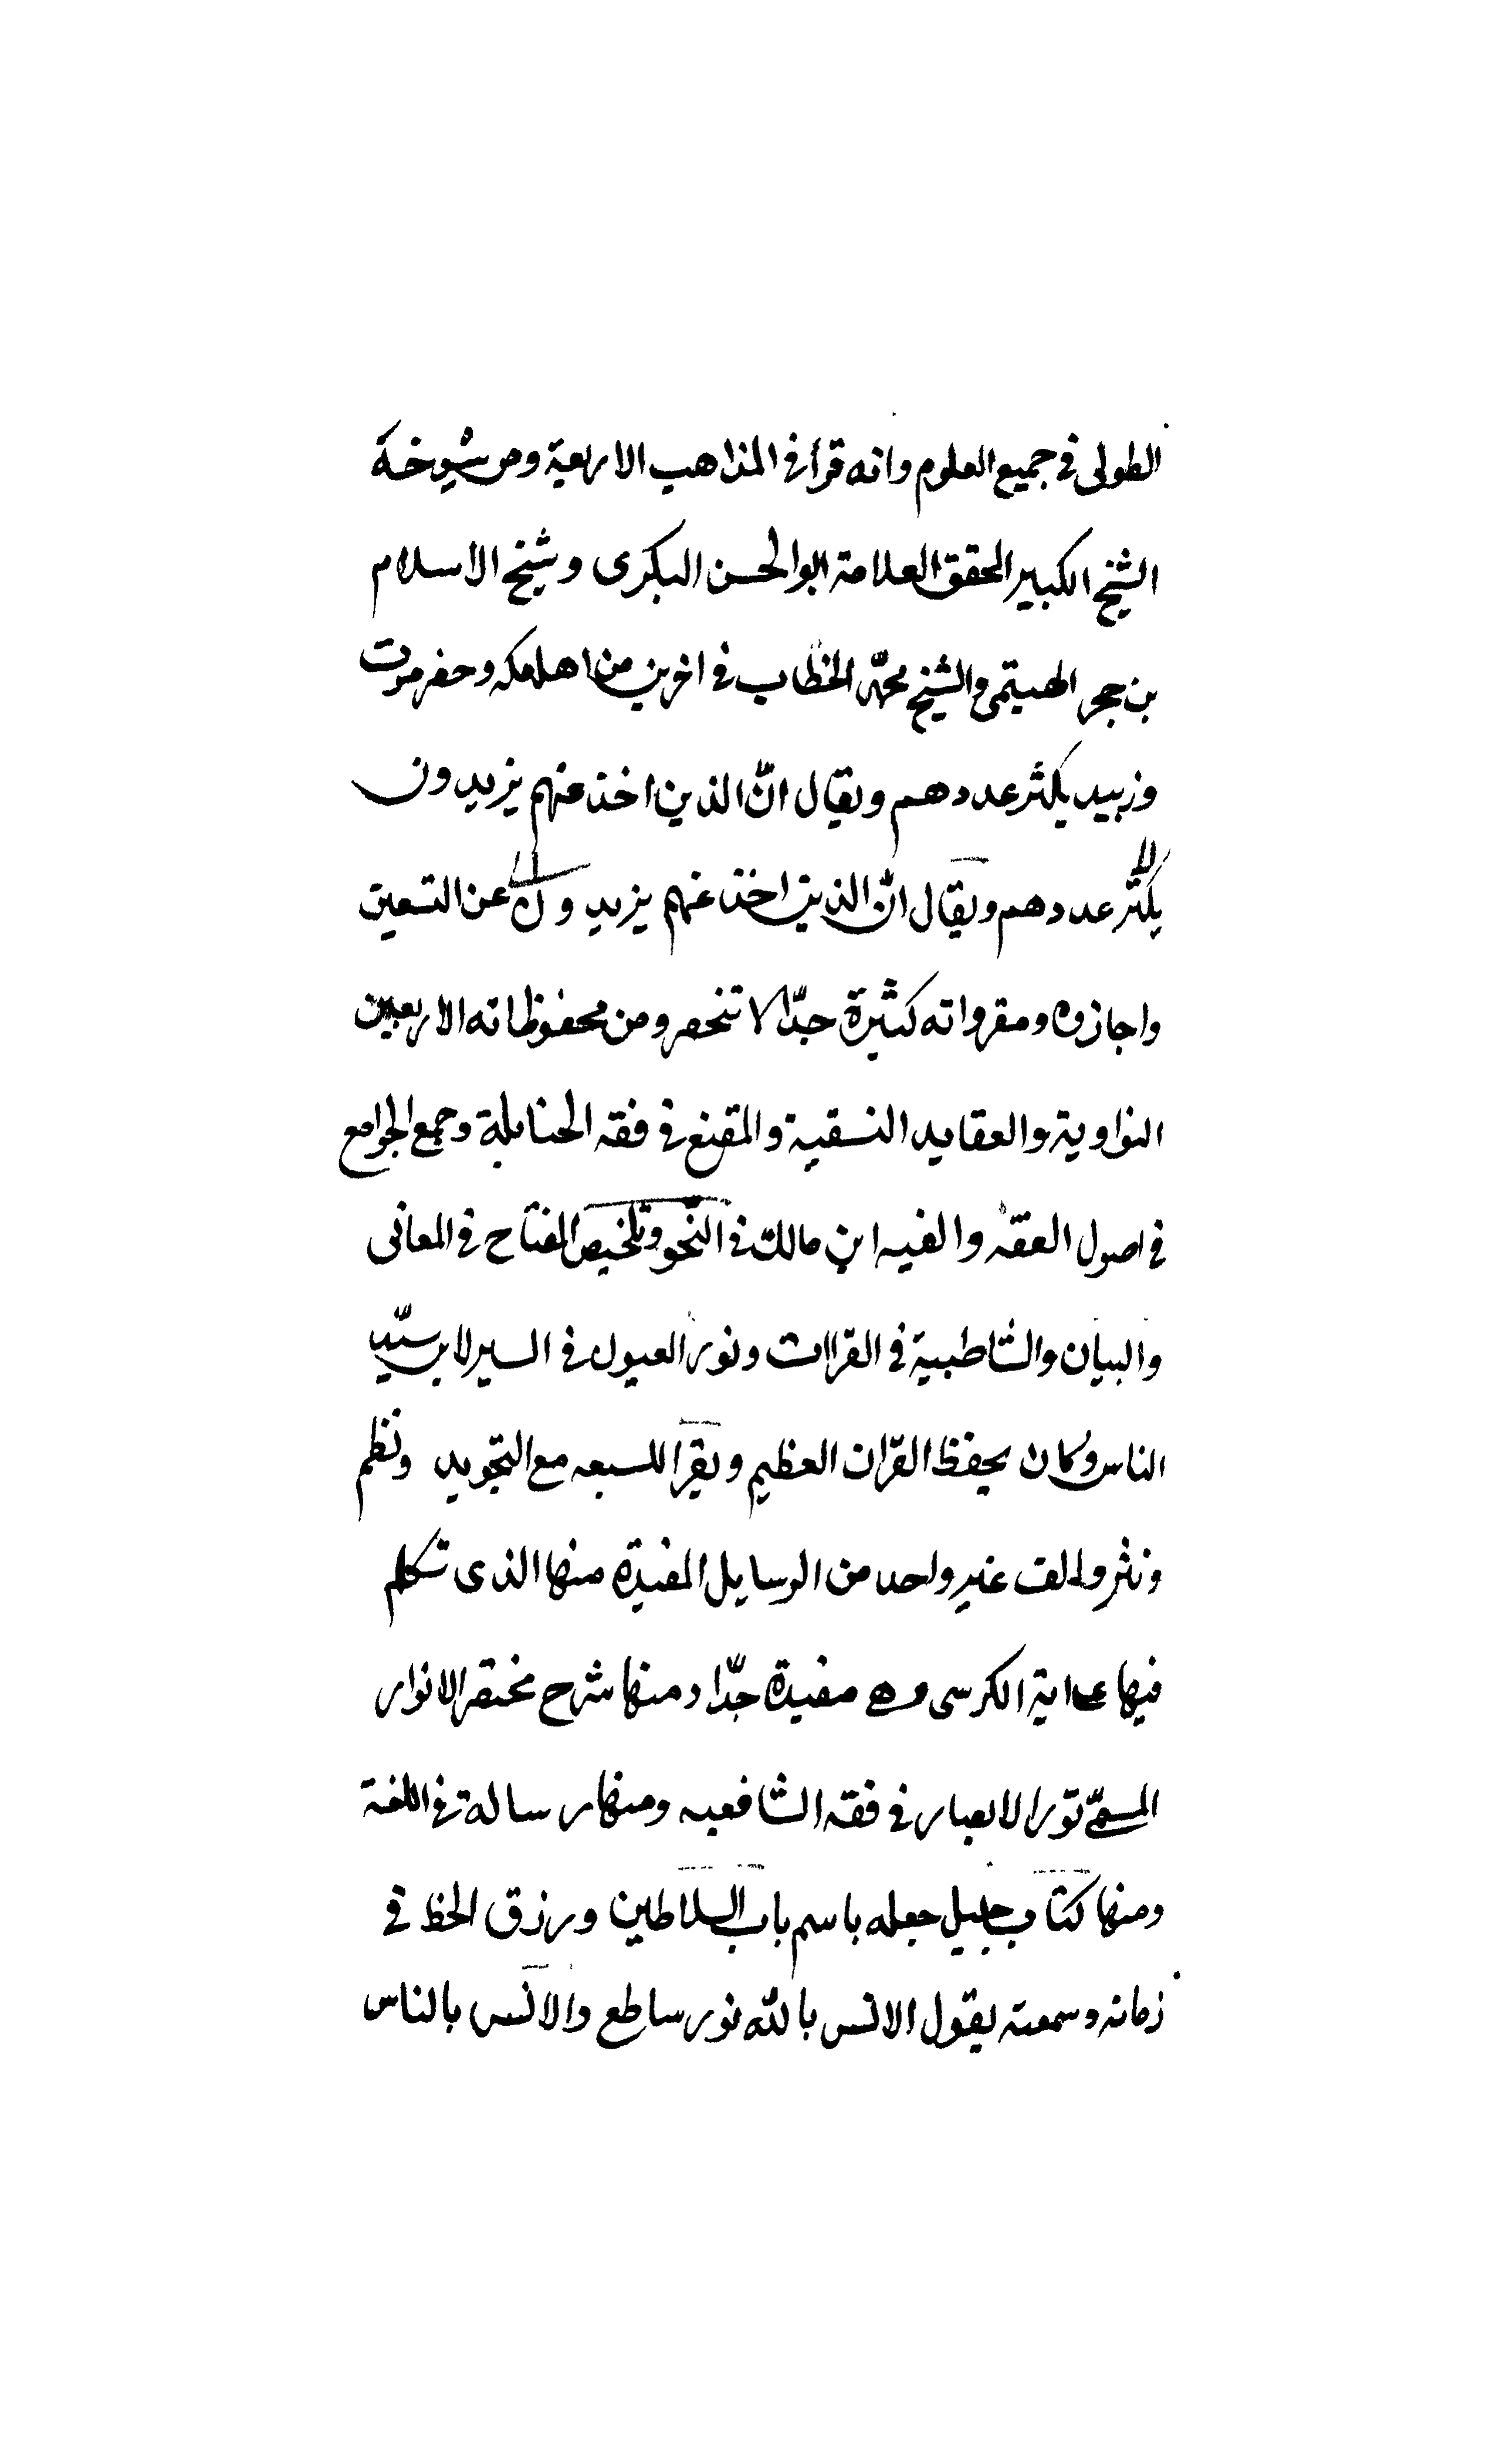 الطولى في جميع العلوم وانه قرأ في المذاهب الاربعة ومن شيوخه
الشيخ الكبير المحقق العلامة ابو الحسن البكرى وشيخ الاسلام
بن حجر الهيتمى والشيخ محمّد الخطاب في اخرين من اهل مكه وحضرموت
وزبيد يكثر عددهم ويقال انّ الذين اخذ عنهم يزيدون
يكثر عددهم ويقال انّ الذين اخذ عنهم يزيدون عن التسعين
واجازوه ومقرواته كثيرة جدّا لا تنحصر ومن محفوظاته الاربعين
النواوية والعقايد النسفية والمقنع في فقه الحنابلة وجمع الجوامع
في اصول الفقه والفيه ابن مالك في النّحو وتلخيص المفتاح في المعانى
والبيان والشاطبية في القراات ونور العيون في السير لابن سيّد
الناس وكان يحفظ القرّان العظيم ويقرا للسبعه مع التجويد ونظم
ونثر والف غير واحد من الرسايل المفيدة منها الذى تكلم
فيها على اية الكرسى وهى مفيدة جدّا ومنها شرح مختصر الانوار
المسمّى نور الابصار في فقه الشافعيه ومنها رسالة في اللغة
ومنها كتاب جليل جعله باسم باب السلاطين ورزق الحظ في
زمانه وسمعته يقول الانس بالله نور ساطع والانس بالناس